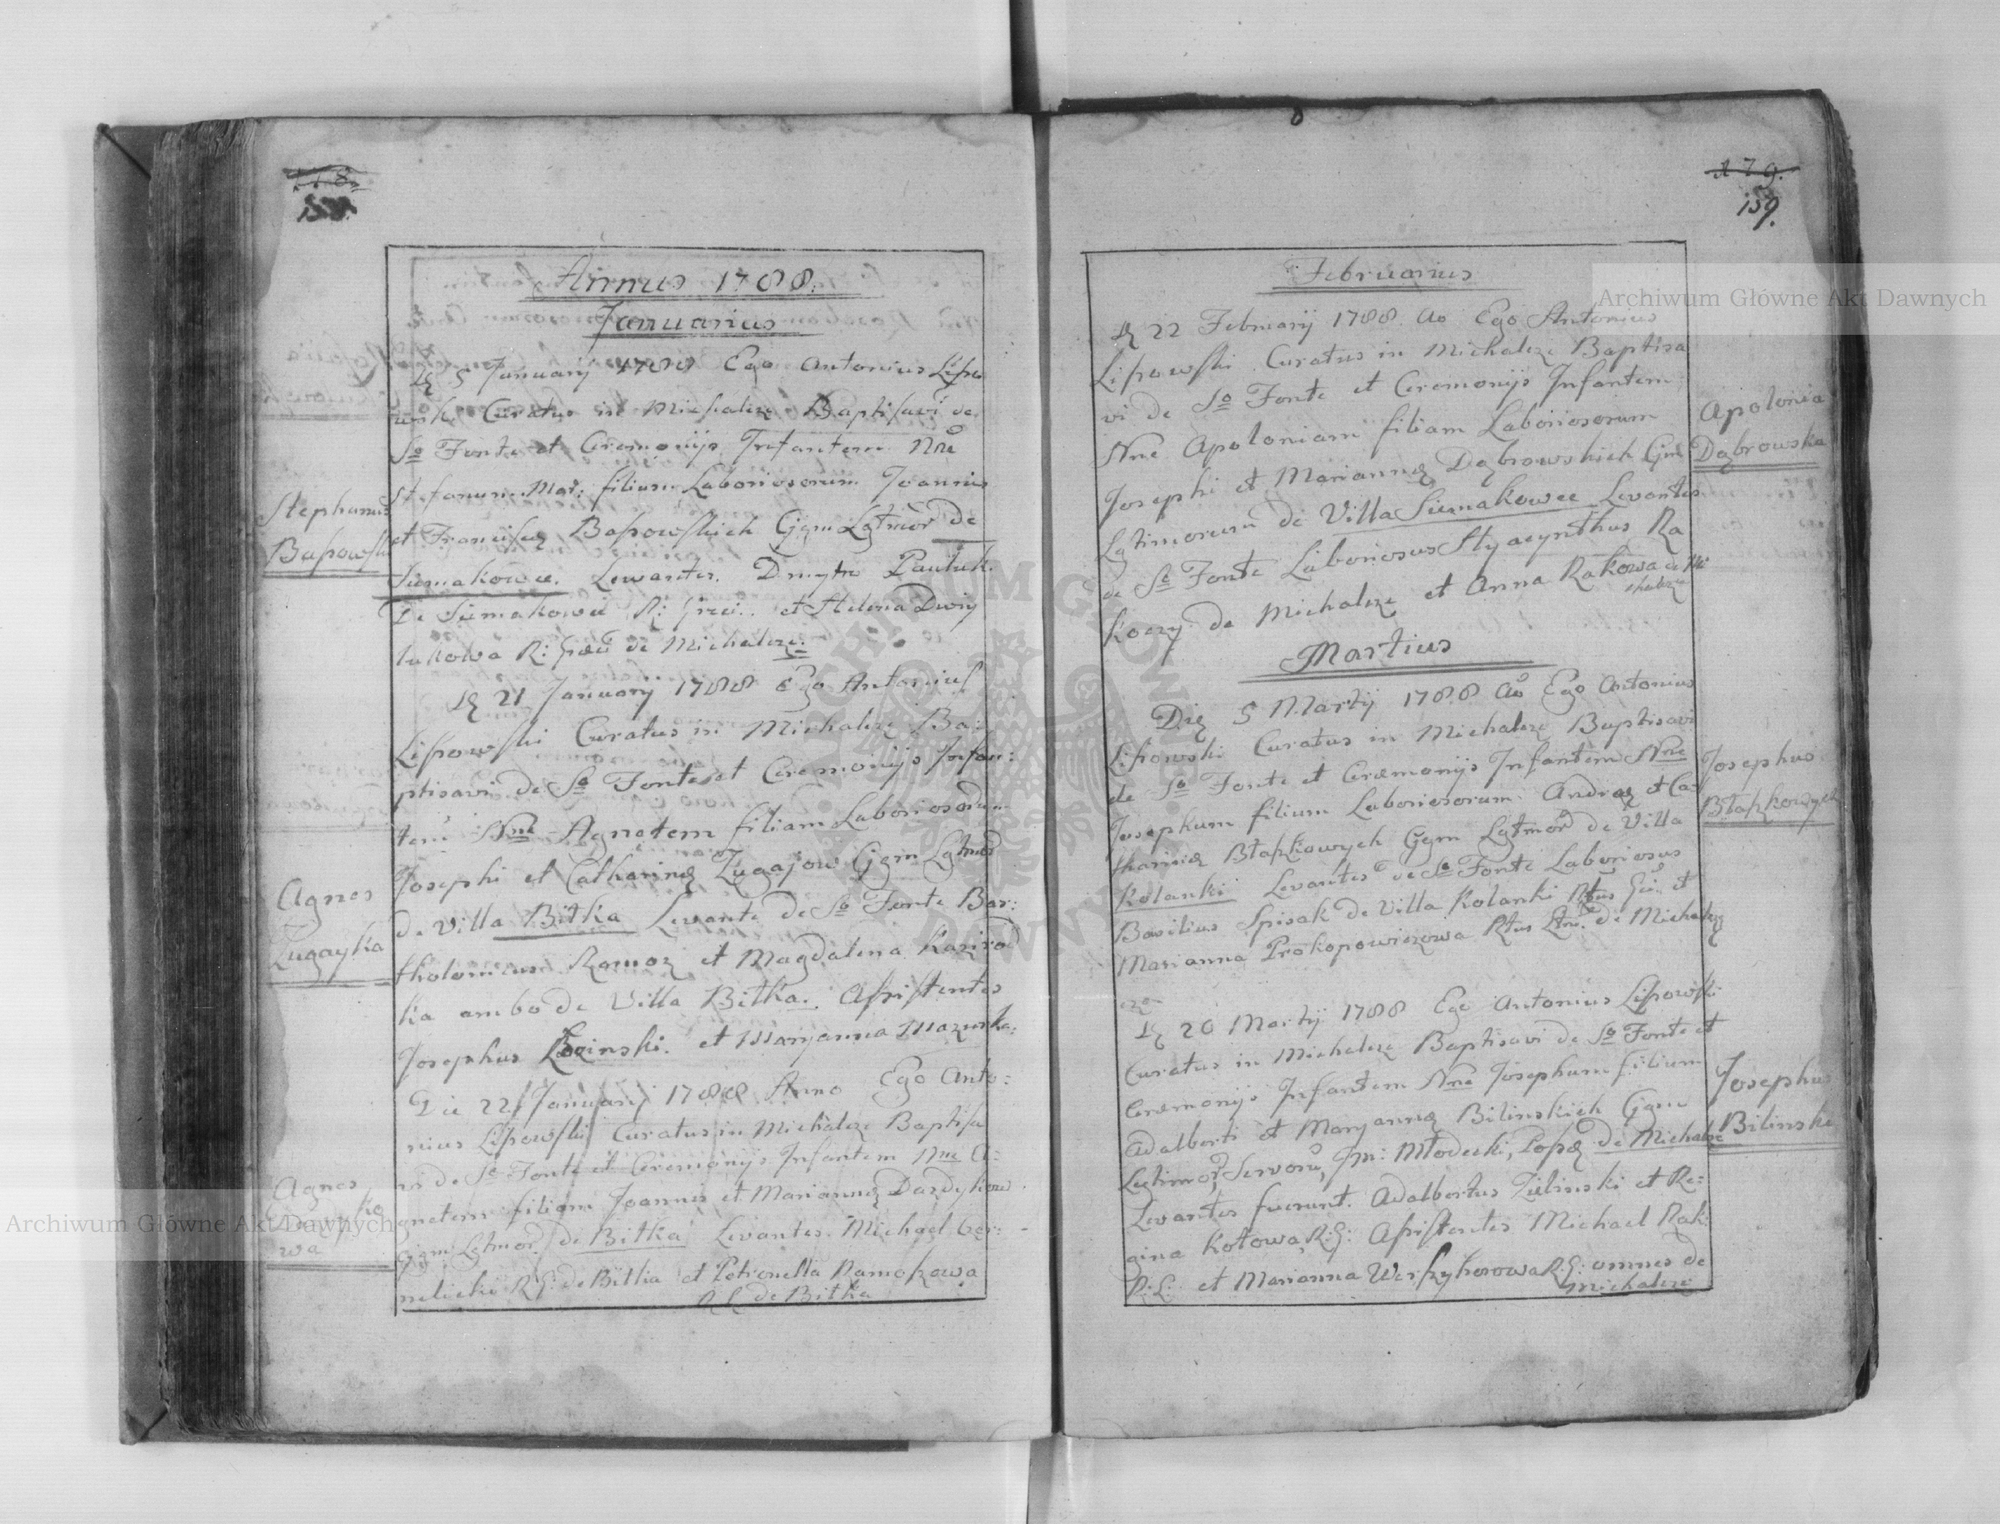 158.
Annus 1788.
Januarius
Stephanus
Bapowski
Dię 5 January 1788 Ego Antonius Lipo
wski Curatus in Michalcze Baptisavi de
So Fonte et Ceremonijs Infantem Nne
Stefanum Mar: filium Laboriosorum Joannis
et Franciscę Bapowskich Gġm Lġtmor de
Siemakowce. Lewantes. Dmytro Pauluk.
De Siemakowce R: Grei. et Helena Dwiy
lukowa R: Graeci de Michalcze.
Agnes
Zugayka
Dę 21 January 1788 Ego Antonius
Lipowski Curatus in Michalcze Ba:
ptisavi de So Fonte et Ceremonijs Infan:
tem Nne Agnetem filiam Laboriosorum
Josephi et Catharinę Zugajow Gġm Lġtmor
de Villa Bitka Levante de So Fonte Bar:
tholomeus Romoz et Magdalena
ka ambo de Villa Bitka. Assistentes
Josephus Łozinski. et Maryanna Mazurka:
Agnes
wa
Die 22 January 1788 Anno Ego Anto:
nius Lipowski Curatus in Michalcze Baptisa
vi de So Fonte et Ceremonijs Infantem Nne A:
gnetem filiam Joannis et Mariannę Dazdykow
Gġm Lġtmor de Bitka Levantes Michael Cor:
nelicki R: G: de Bitka et Petronella Ramozowa
R L de Bitka
179.
159.
Februarius
Dę 22 Februarij 1788 Ao Ego Antonius
Lipowski Curatus in Michalcze Baptisa
vi de So Fonte et Ceremonijs Infantem
Nne Apoloniam filiam Laboriosorum
Josephi et Mariannę Dąbrowskich Gġm
Lġtimorum de Villa Siemakowce Levantes
de So Fonte Laboriosus Hyacynthus Ra
koczy de Michalcze et Anna Rakowa de Mi
chalcze
Apolonia
Dąbrowska
Martius
Dię 5 Martij 1788 Ao Ego Antonius
Lipowski Curatus in Michalcze Baptisavi
de So Fonte et Ceremonijs Infantem Nne
Josephum filium Laboriosorum Andreę et Ca
tharinę Błaszkowych Gġm Lġtmor de Villa
Kolanki Levantes de So Fonte Laboriosus
Basilius Spisak de Villa Kolanki Rtus Gci. et
Marianna Prokopowiczowa Rtus Ltni. de Michalcze
Josephus
Błaszkowych
Dę 20 Martij 1788 Ego Antonius Lipowski
Curatus in Michalcze Baptisavi de So Fonte et
Ceremonijs Infantem Nne Josephum filium
Adalberti et Maryannę Bilinskich Gġm
Lġtimor, Servorũ, Jm: Młodecki, Popę de Michalcze
Levantes fuerunt. Adalbertus Zielinski et Re=
gina Kotowa, R: G: Assistentes Michael Rak
R: L: et Marianna R: G: omnes de
Michalcze
Josephus
Bilinski
Archiwum Główne Akt Dawnych
Archiwum Główne Akt Dawnych
ARCHIWUM GŁÓWNE AKT DAWNYCH